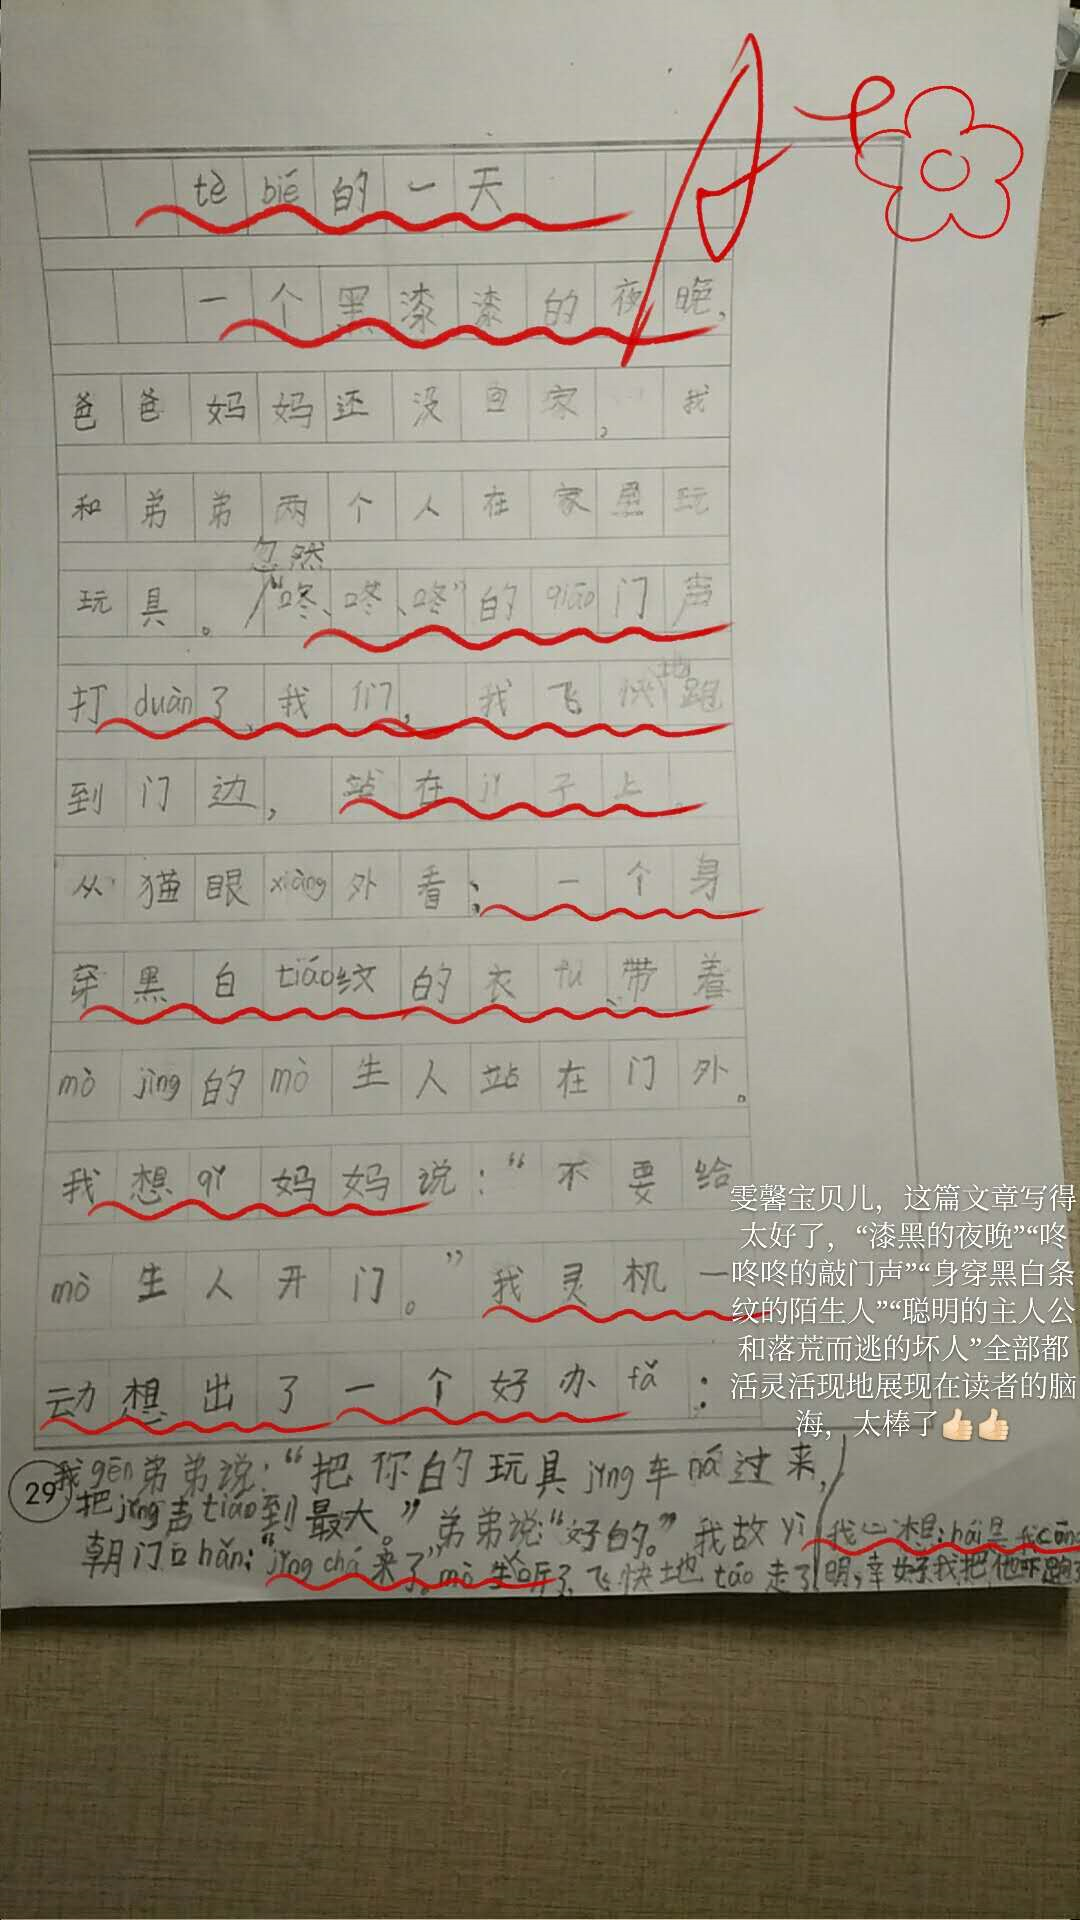 A+
tè bié 的一天
一个黑漆漆的夜晚,
爸爸妈妈还没回家,我
和弟弟两个人在家里玩
忽然
玩具。“咚、咚、咚”的qiāo门声
地
打duàn了我们,我飞快跑
到门边,站在yǐ子上。
从猫眼xiàng外看;一个身
穿黑白tiáo纹的衣fu、带着
mò jìng的mò生人站在门外。
我想qǐ妈妈说:“不要给
mò生人开门。”我灵机一
动想出了一个好办fǎ:
我gēn弟弟说:“把你的玩具jǐng车ná过来,
把jǐng声tiáo到最大。”弟弟说“好的。”我故yì
朝门口hǎn:“jǐng chá来了。”mò生听了飞快地táo走了
我心想:hái是我cōng
明,幸好我把他吓跑了
29
雯馨宝贝儿，这篇文章写得
太好了，“漆黑的夜晚”“咚
咚咚的敲门声”“身穿黑白条
纹的陌生人”“聪明的主人公
和落荒而逃的坏人”全部都
活灵活现地展现在读者的脑
海，太棒了👍🏻👍🏻